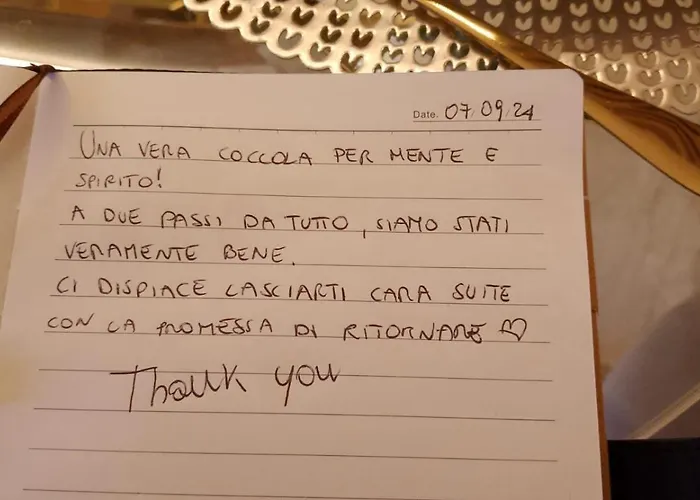 Date. 07/09/24
UNA VERA COCCOLA PER MENTE E
SPIRITO!
A DUE PASSI DA TUTTO, SIAMO STATI
VERAMENTE BENE.
CI DISPIACE LASCIARTI CARA SUITE
CON LA PROMESSA DI RITORNARE ♡
Thank you